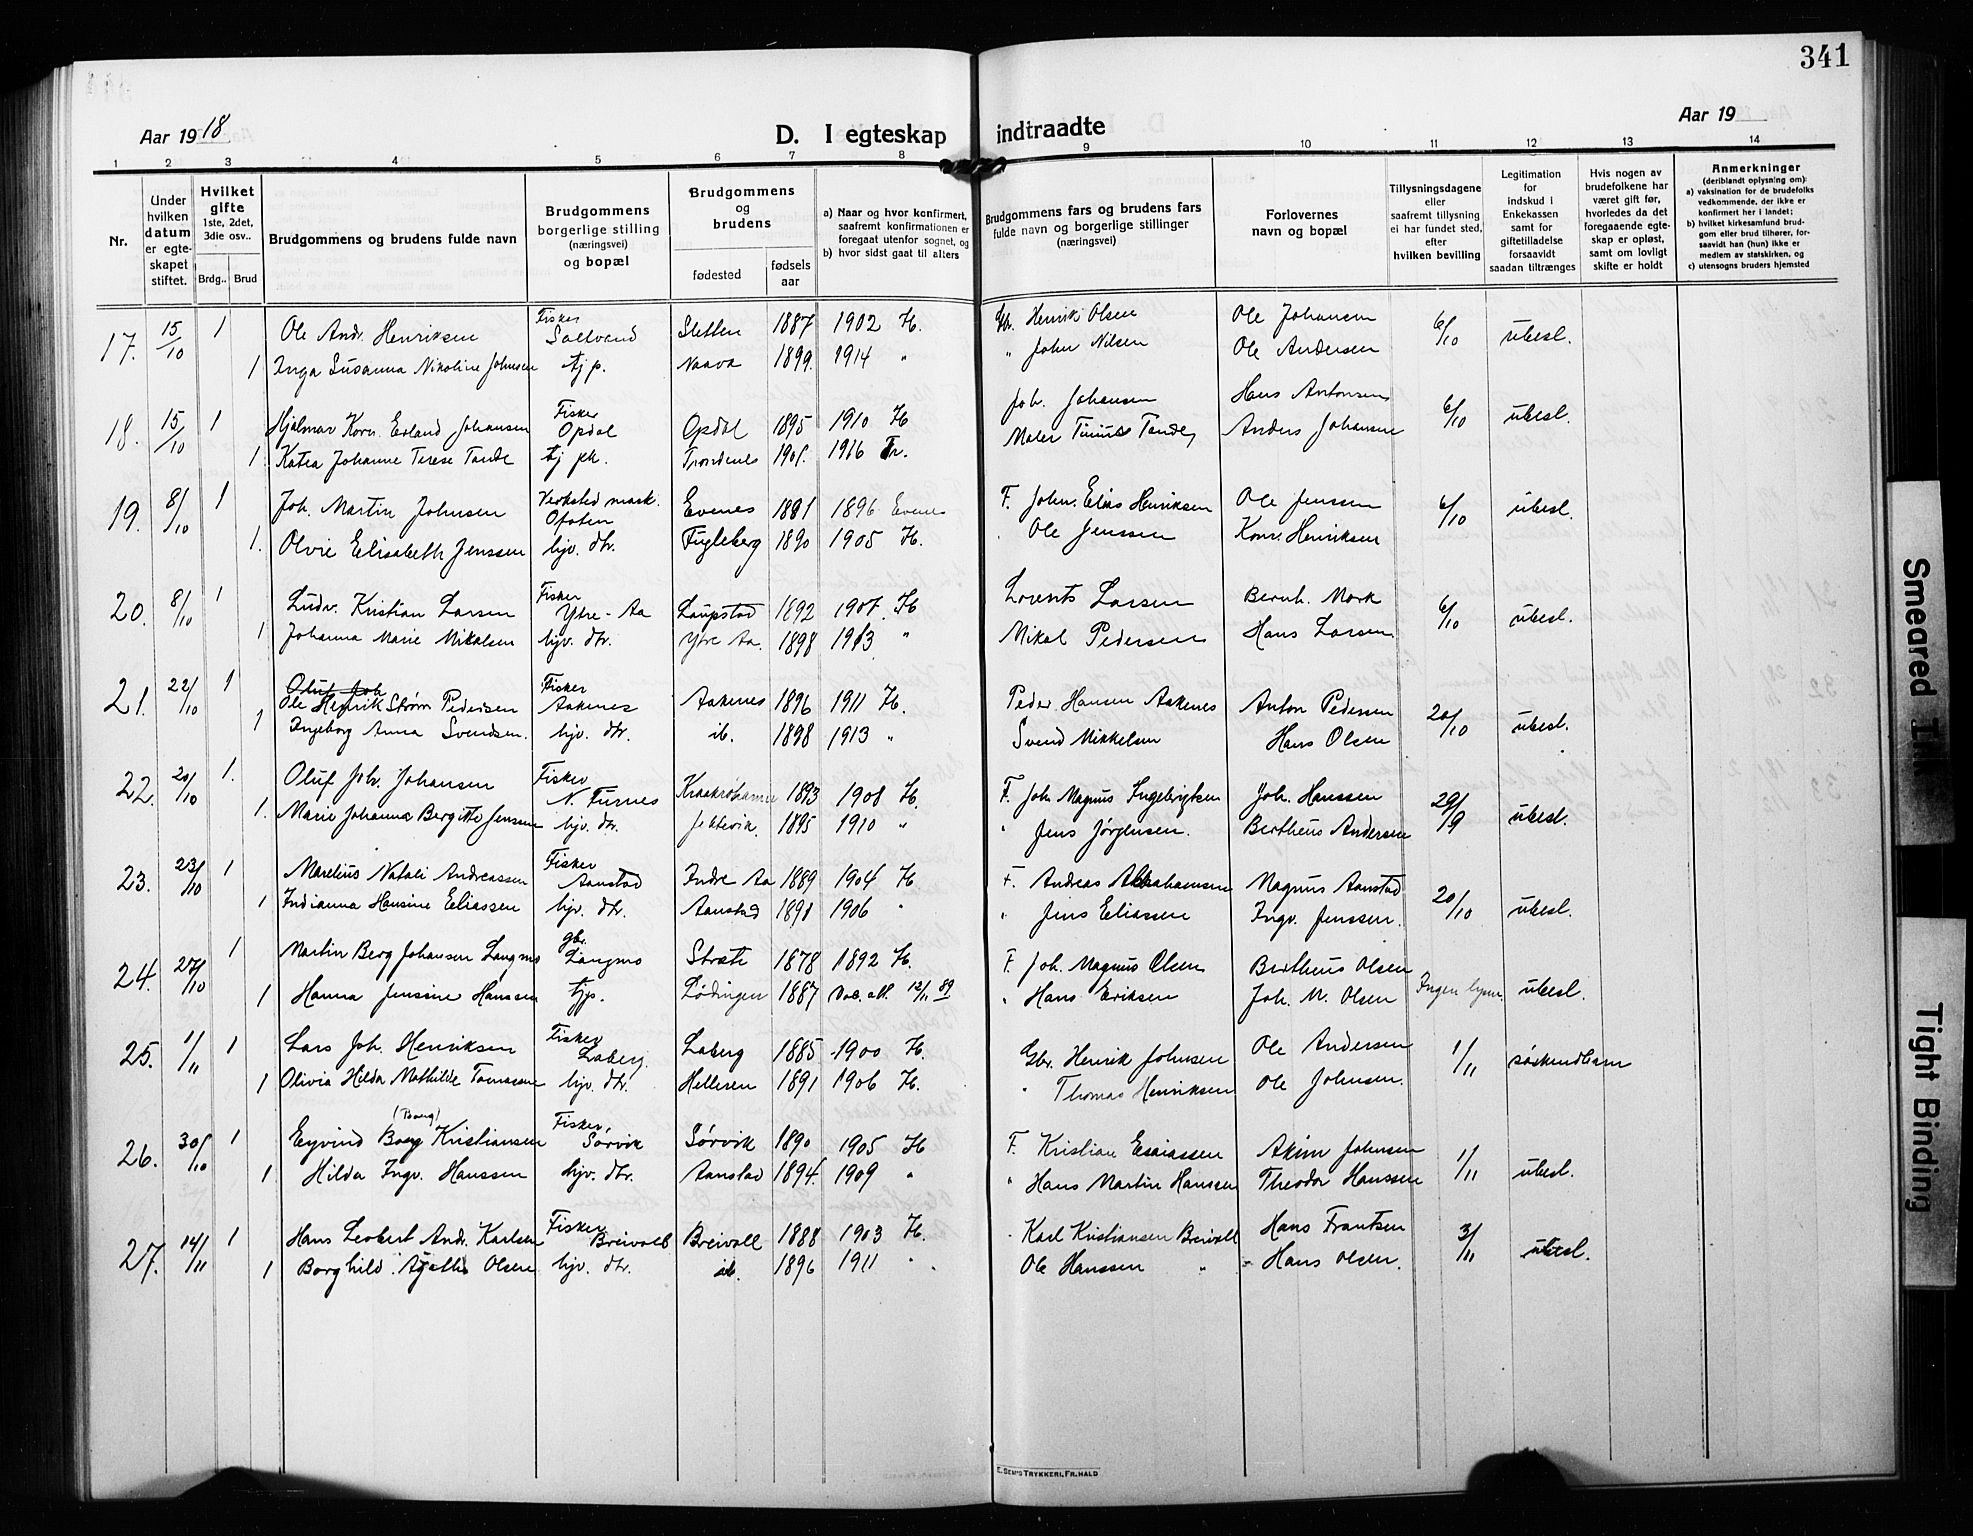 341
Aar 1918
D. I egteskap indtraadte
Aar 19
1 2 3 4 5 6 7 8 9 10 11 12 13 14
Nr.
Under hvilken datum er egteskapet stiftet.
Hvilket gifte 1ste, 2det, 3die osv..
Brdg.. Brud
Brudgommens og brudens fulde navn
Brudgommens borgerlige stilling (næringsvei) og bopæl
Brudgommens og brudens
fødested
fødsels aar
a) Naar og hvor konfirmert, saafremt konfirmationen er foregaat utenfor sognet, og
b) hvor sidst gaat til alters
Brudgommens fars og brudens fars fulde navn og borgerlige stillinger (næringsvei)
Forlovernes navn og bopæl
Tillysningsdagene eller saafremt tillysning ei har fundet sted, efter hvilken bevilling
Legitimation for indskud i Enkekassen samt for giftetilladelse forsaavidt saadan tiltrænges
Hvis nogen av brudefolkene har været gift før, hvorledes da det foregaaende egteskap er opløst, samt om lovligt skifte er holdt
Anmerkninger (deriblandt oplysning om): a) vaksination for de brudefolks vedkommende, der ikke er konfirmert her i landet; b) hvilket kirkesamfund brudgom eller brud tilhører, forsaavidt han (hun) ikke er medlem av statskirken, og c) utensogns bruders hjemsted
17. 15/10 1 Ole Andr. Henriksen Fisker Sollvand Sletten 1887 1902 H. Gbr. Henrik Olsen Ole Johansen 6/10 ubesl.
1 Inga Susanna Nikoline Johnsen tj p. Naava 1899. 1914 " " John Nilsen Ole Andersen
18. 15/10 1 Hjalmar Korn. Erland Johansen Fisker Opdal Opdal 1895 1910 H Joh. Johansen Hans Antonsen 6/10 ubesl.
1 Katra Johanne Terese Tande tj pk. Trondenes 1901. 1916 Tr. Maler Tinius Tande, Anders Johansen
19. 8/10 1 Joh. Martin Johnsen Verksted mask. Ofoten Evenes 1881 1896 Evenes F. John. Elias Henriksen Ole Jenssen 6/10 ubesl.
1. Olvie Elisabeth Jenssen hjv. dtr. Fugleberg 1890 1905 H. Ole Jenssen Konr. Henriksen
20. 8/10 1 Ludv. Kristian Larsen Fisker Ytre-Aa Laupstad 1892 1907. H Lorents Larsen Bernh. Mork 6/10 ubesl.
1 Johanna Marie Mikalsen hjv. dtr. Ytre Aa. 1898 1913 " Mikal Pedersen Hans Larsen
21. 22/10 1 Oluf Joh
Ole Henrik Strøm Pedersen Fisker Aakenes Aakenes 1896 1911 H. Peder Hansen Aakenes Anton Pedersen 20/10 ubesl.
1 Ingeborg Anna Svendsen. hjv. dtr. ib. 1898 1913 " Svend Mikkelsen Hans Olsen
22. 20/10 1. Oluf Joh. Johansen Fisker N. Furnes 1893 1908 H. F. Joh. Magnus Ingebrigtsen Joh. Hanssen 29/9 ubesl.
1. Marie Johanna Bergitte Jenssen hjv. dtr. Jektevik. 1895 1910 " " Jens Jørgensen. Bertheus Andersen
23. 23/10 1 Marelius Natali Andreassen Fisker Aanstad Indre Aa 1889 1904 H F. Andreas Abrahamsen Magnus Aanstad 20/10 ubesl.
1 Indianna Hansine Eliassen hjv. dtr. Aanstad 1891 1906 " " Jens Eliassen Ingv. Jenssen.
24. 27/10 1 Martin Berg Johansen Langmo gbr. Langmo Stræte 1878 1892 H. F. Joh. Magnus Olsen Bertheus Olsen Ingen lysn. ubesl.
1 Hanna Jensine Hanssen tjp. Lødingen 1887 12/11 89 " Hans Eriksen Joh. M. Olsen
25. 1/11 1 Lars Joh. Henriksen Fisker Laberg. Laberg 1885 1900 H. Gbr. Henrik Johnsen Ole Andersen 1/11 søskendbarn
1 Olivia Hilda Mathilde Tomassen hjv. dtr. Helleren 1891 1906 H. " Thomas Henriksen Ole Johnsen.
26. 30/10 1 (Bang)
Eyvind Boeg Kristiansen Fisker, Sørvik Sørvik 1890 1905 H F. Kristian Esaiassen Akim Johnsen 1/11 ubesl.
1 Hilda Ingv. Hanssen hjv. dtr. Aanstad 1894. 1909 " " Hans Martin Hanssen Theodor Hanssen
27. 14/11 1 Hans Leobert Andr. Karlsen Fisker Breivoll Breivoll 1888 1903 H. Karl Kristiansen Breivoll Hans Frantsen 3/11 ubesl.
1 Borghild Agathe Olsen hjv. dtr. ib. 1896 1911 " Ole Hanssen " Hans Olsen.
E. SEM'S TRYKKERI, FR.HALD
Smeared Ink
Tight Binding